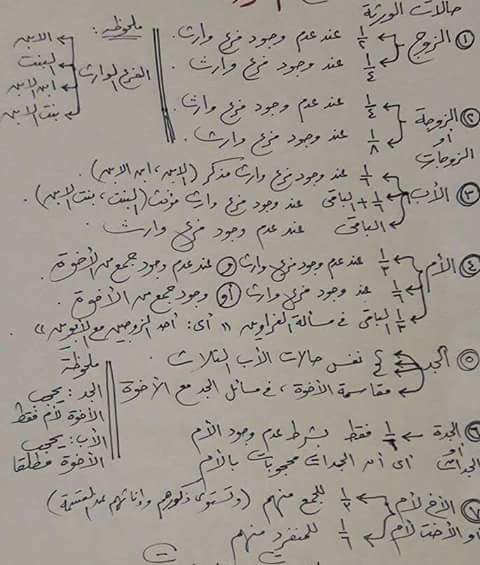 حالات الورثة
① الزوج
1/2 عند عدم وجود فرع وارث.
1/4 عند وجود فرع وارث.
ملحوظة:
الفرع الوارث
الابن
البنت
ابن الابن
بنت الابن
② الزوجة أو الزوجات
1/4 عند عدم وجود فرع وارث
1/8 عند وجود فرع وارث.
③ الأب
1/6 عند وجود فرع وارث مذكر (الابن، ابن الابن).
1/6 + الباقى عند وجود فرع وارث مؤنث (البنت، بنت الابن).
الباقى عند عدم وجود فرع وارث
④ الأم
1/3 عند عدم وجود فرع وارث و عند عدم وجود جمع من الأخوة.
1/6 عند وجود فرع وارث أو وجود جمع من الأخوة.
1/3 الباقى فى مسألة الغراوين "أى: أحد الزوجين مع الأبوين"
⑤ الجد
نفس حالات الأب الثلاث
مقاسمة الأخوة، فى مسائل الجد مع الأخوة
ملحوظة
الجد: يحجب
الأخوة لأم فقط
الأب: يحجب
الأخوة مطلقا
⑥ الجدة أو الجدات
1/6 فقط بشرط عدم وجود الأم
أى أن الجدات محجوبات بالأم
⑦ الأخ لأم أو الأخت لأم
1/3 للجمع منهم (وتستوى ذكورهم وإناثهم عند القسمة)
1/6 للمنفرد منهم